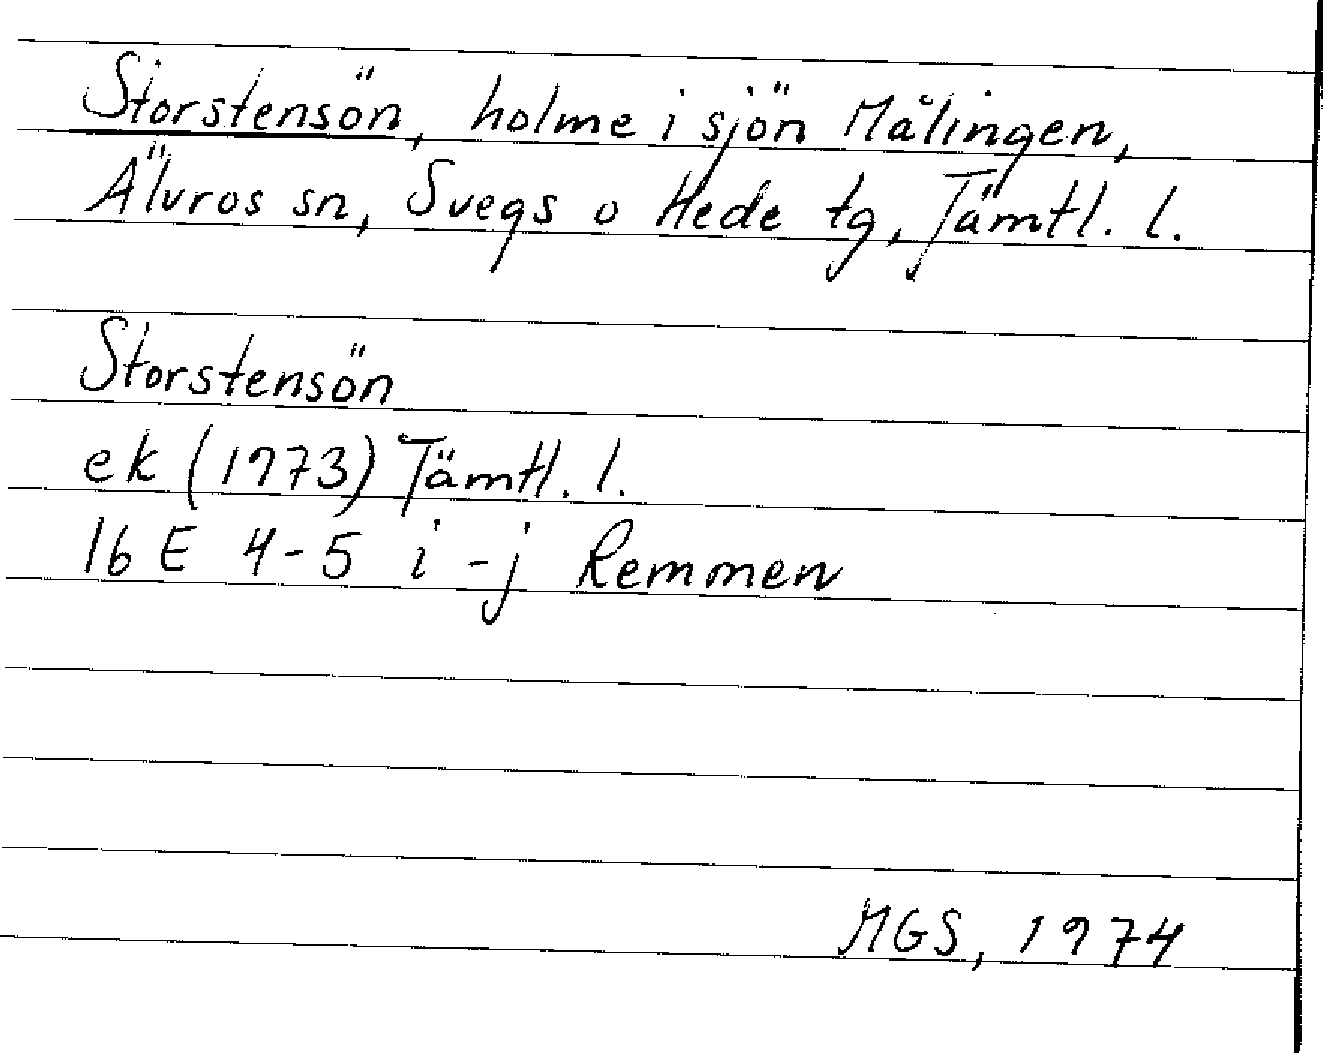 Storstensön, holme i sjön Målingen,
Älvros sn, Svegs o Hede tg, Jämtl. l.
Storstensön
ek (1973) Jämtl. l.
16 E 4-5 i -j Remmen
MGS, 1974